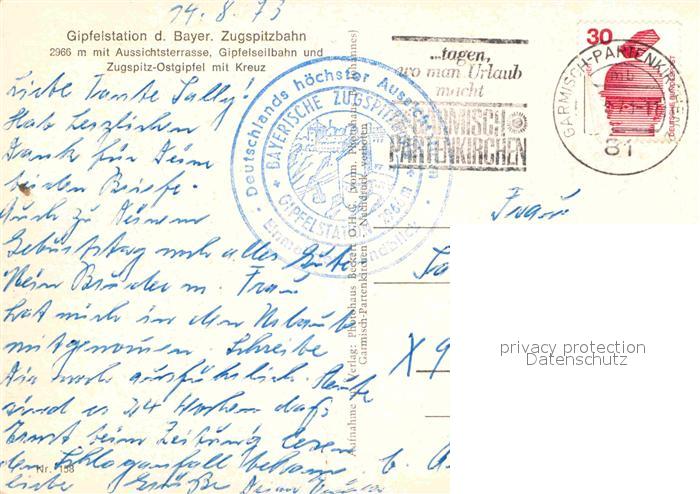 14.8.73
Gipfelstation d. Bayer. Zugspitzbahn
2966 m mit Aussichtsterrasse, Gipfelseilbahn und
Zugspitz-Ostgipfel mit Kreuz
Liebe Tante Sally!
Hab herzlichen
Dank für Deine
beiden Briefe.
Auch zu Deinem
Geburtstag noch alles Gute
Mein Bruder m. Frau
hat mich in den Urlaub
mitgenommen. Schreibe
Dir noch ausführlich. Heute
sind es 24 Wochen daß
Ernst beim Zeitung lesen
den Schlaganfall bekam
liebe Grüße Deine
Nr. 158
Deutschlands höchster Aussich
BAYERISCHE ZUGSPITZ
GIPFELSTATION
Aufnahme Verlag: Photohaus Beckert O.H.G. Johannes)
Garmisch-Partenkirchen Nachdruck verboten
...tagen,
wo man Urlaub
macht
GARMISCH
PARTENKIRCHEN
GARMISCH-PARTENKIR
81
30
Deutsche Bundespost
Frau
X 9
privacy protection
Datenschutz